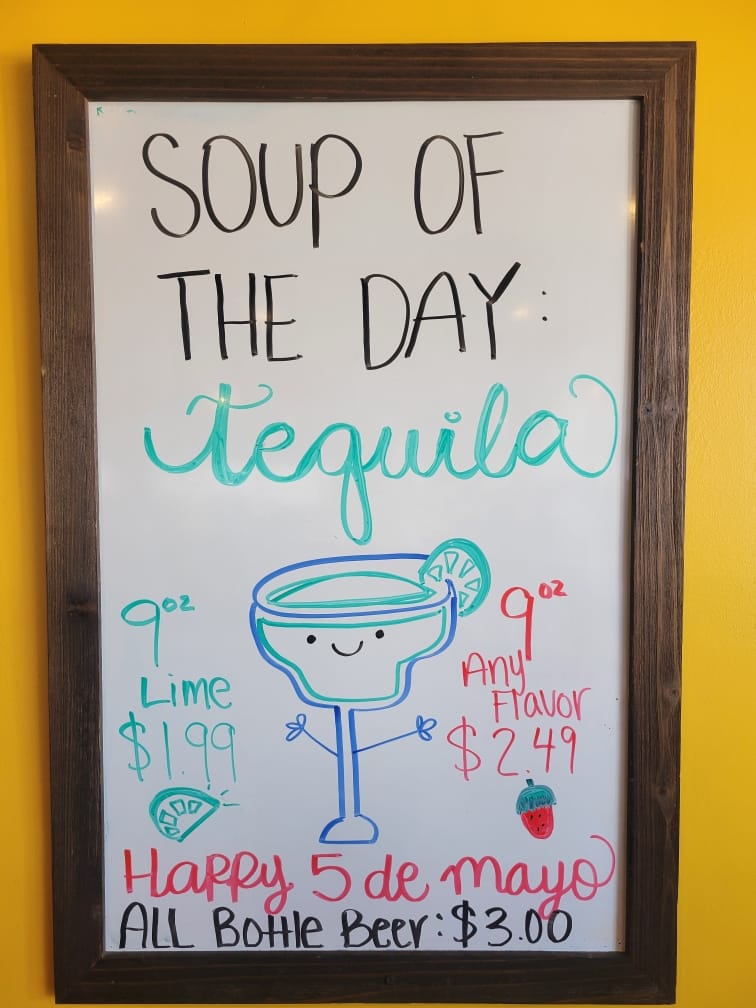 SOUP OF
THE DAY:
tequila
9oz
Lime
$1.99
9oz
Any
Flavor
$2.49
Happy 5 de mayo
ALL Bottle Beer: $3.00